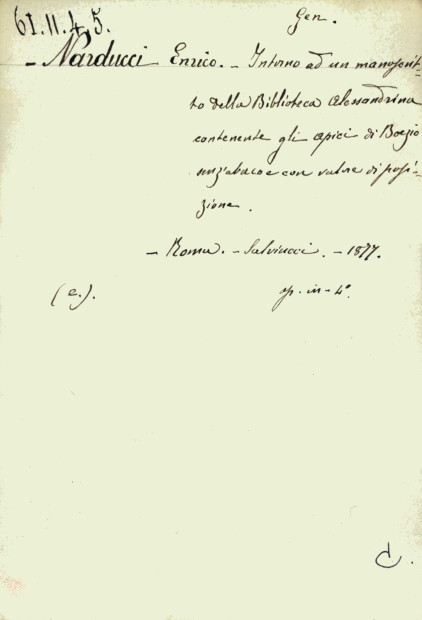 Gen.
61.11.4,5.
- Narducci Enrico. - Intorno ad un manoscrit-
to della Biblioteca Alessandrina
contenente gli apici di Boezio
senz'abaco e con valore di posi-
zione.
- Roma. - Salviucci. - 1877.
(e.). op. in-4º
d.